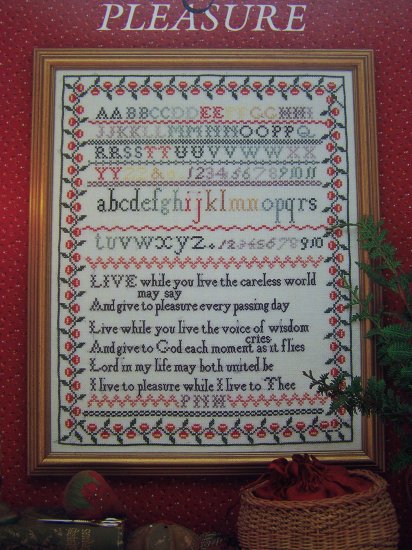 PLEASURE
AABBCCDDEEFFGGHHI
JJKKLLMMNNOOPPQ
RRSSTTUUVVWWXX
YYZZ&. 1234567891011
abcdefghijklmnopqrs
tuvwxyz. 12345678910
LIVE while you live the careless world
may say
And give to pleasure every passing day
Live while you live the voice of wisdom
cries
And give to God each moment as it flies
Lord in my life may both united be
I live to pleasure while I live to Thee